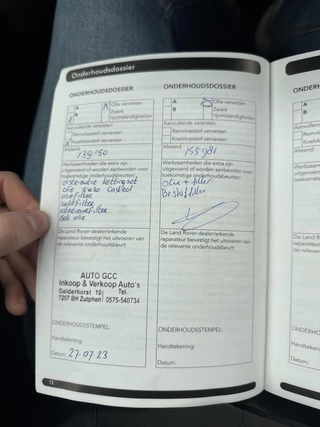 Onderhoudsdossier
ONDERHOUDSDOSSIER
A
B
Olie verversen
Zware
rijomstandigheden
Aanvullende vereisten:
Remvloeistof verversen
Koelvloeistof verversen
Afstand
139150
Werkzaamheden die extra zijn
uitgevoerd of worden aanbevolen voor
toekomstige onderhoudsbeurten:
Distributie kettingset
olie 5w30 Castrol
oliefilter
luchtfilter
interieurfilter
olie
De Land Rover-dealer/erkende
reparateur bevestigt het uitvoeren van
de relevante onderhoudsbeurt.
AUTO GCC
Inkoop & Verkoop Auto's
Gelderhorst 10 Tel.
7207 BH Zutphen 0575-540734
ONDERHOUDSSTEMPEL:
Handtekening:
Datum: 27.07.23
12
ONDERHOUDSDOSSIER
A
B
Olie verversen
Zware
rijomstandigheden
Aanvullende vereisten:
Remvloeistof verversen
Koelvloeistof verversen
Afstand
155981
Werkzaamheden die extra zijn
uitgevoerd of worden aanbevolen voor
toekomstige onderhoudsbeurten:
olie + filter
De Land Rover-dealer/erkende
reparateur bevestigt het uitvoeren van
de relevante onderhoudsbeurt.
ONDERHOUDSSTEMPEL:
Handtekening:
Datum: